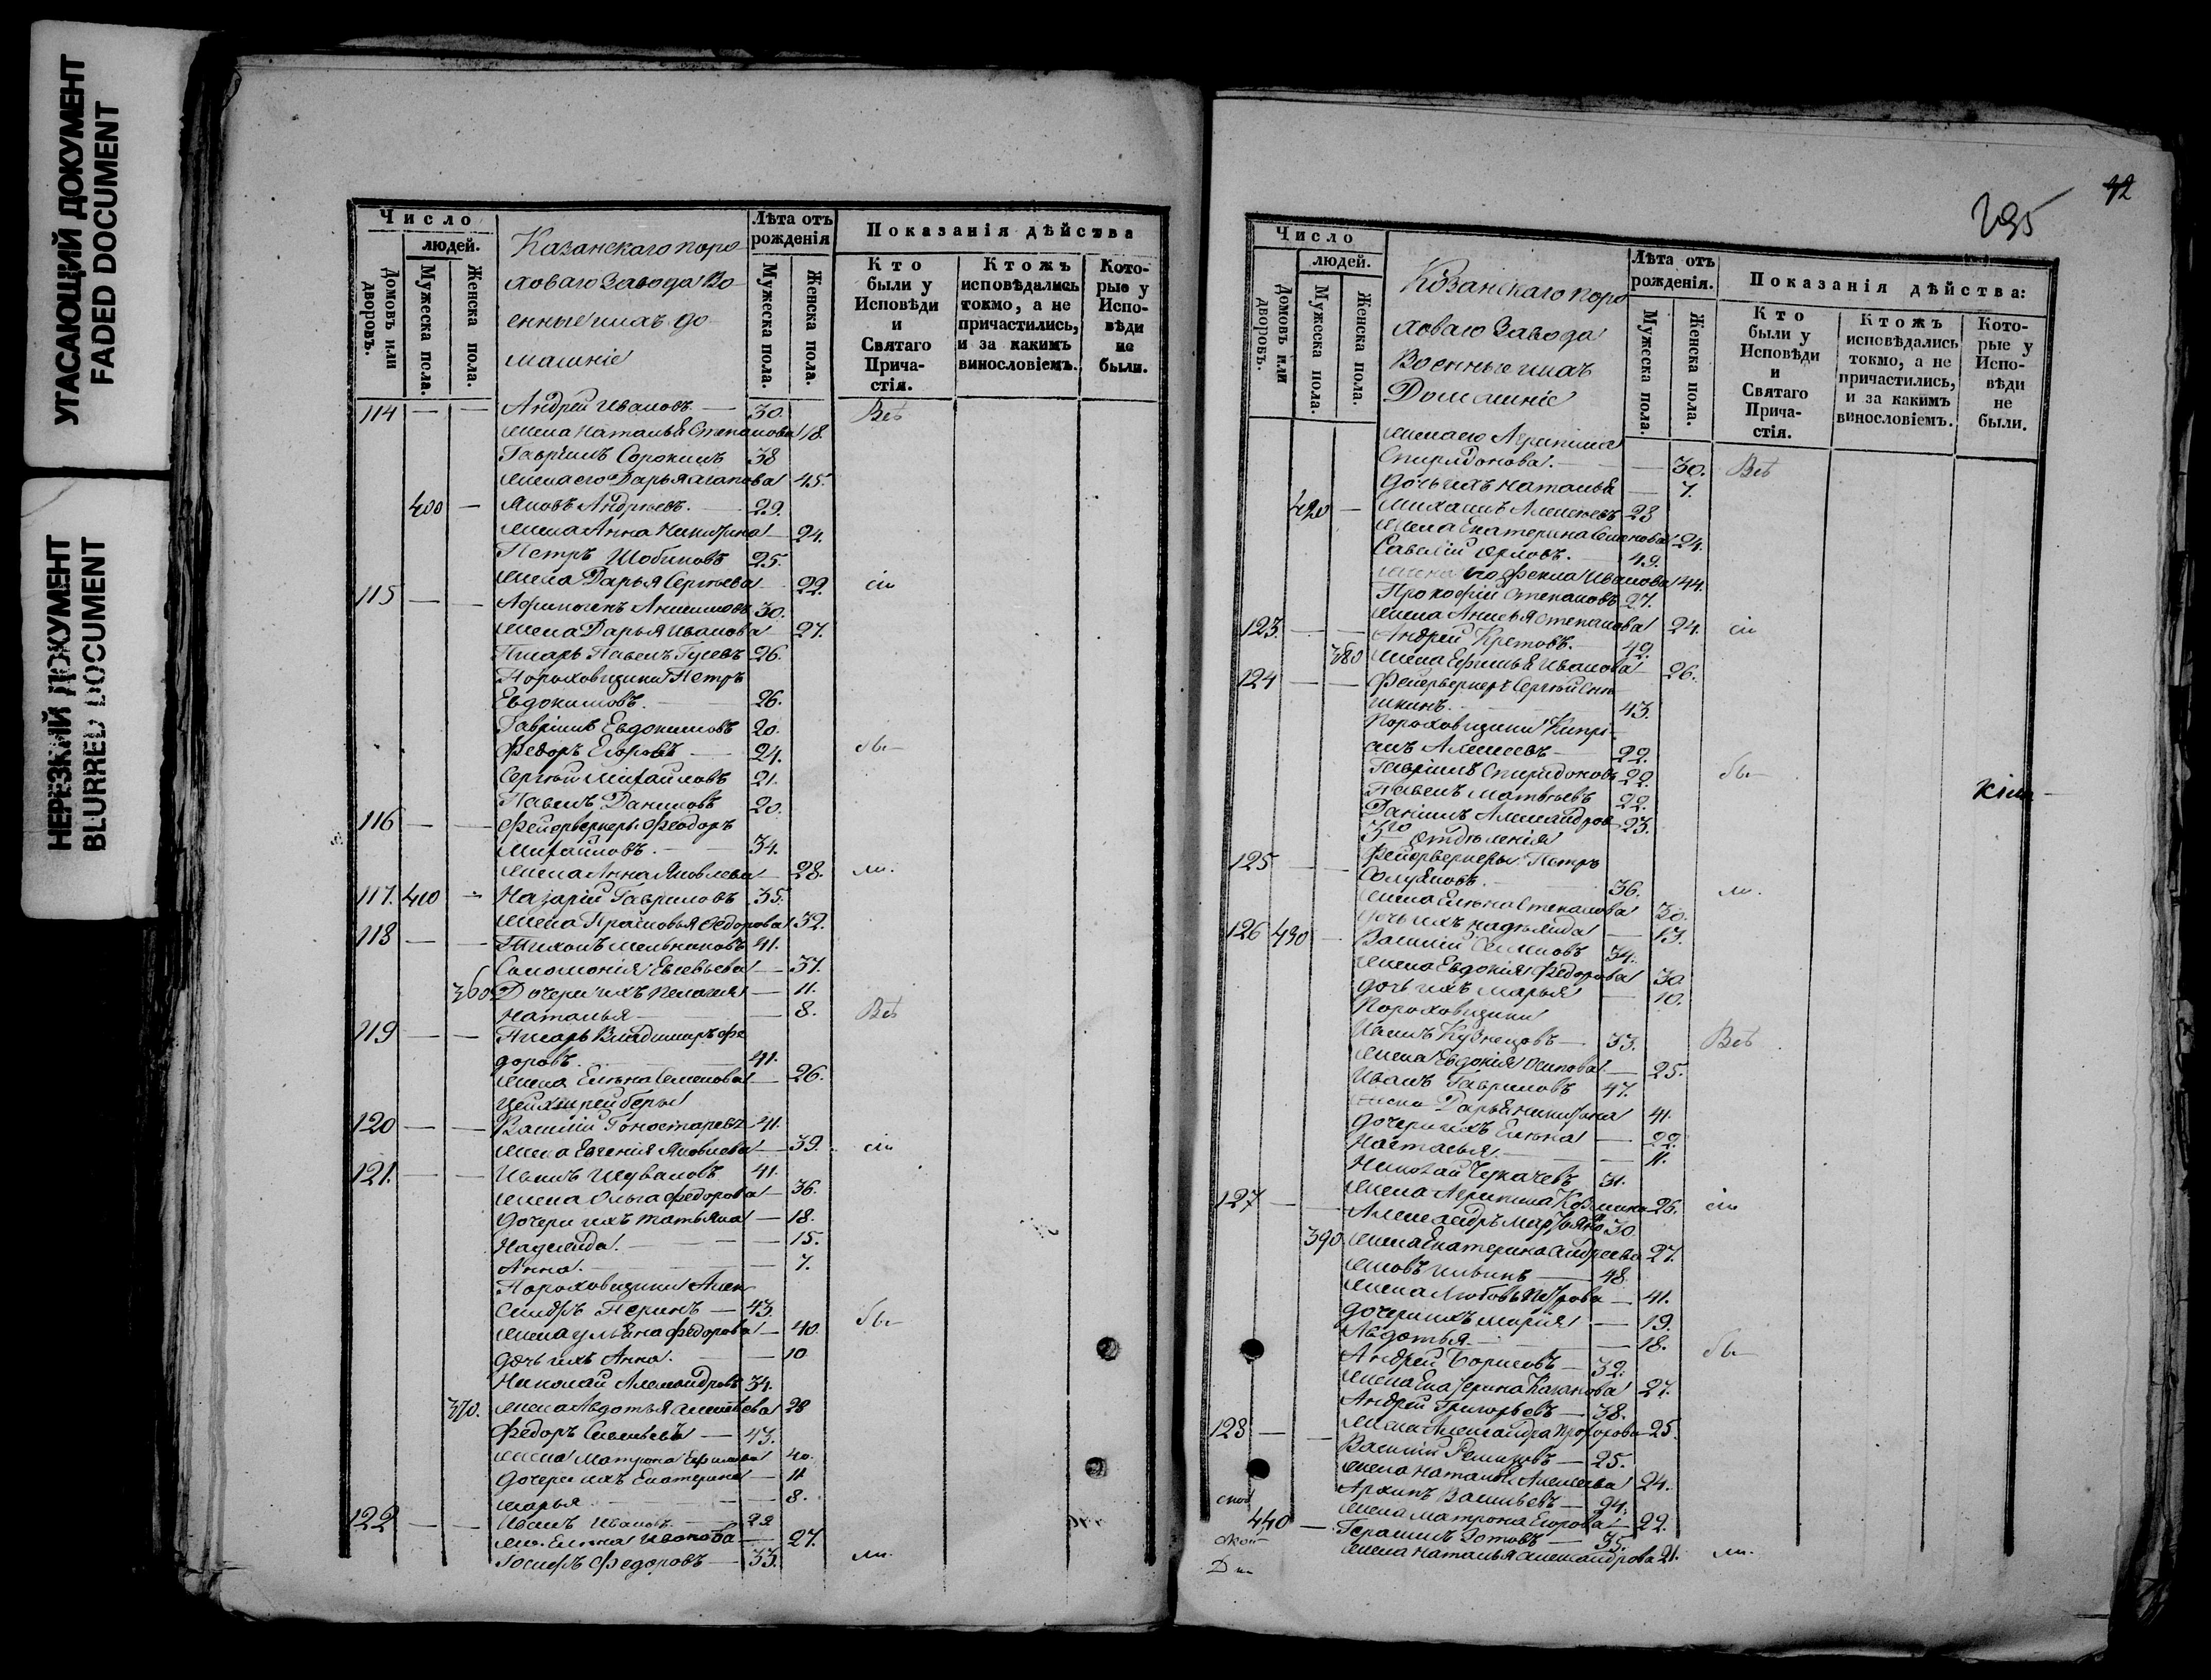 УГАСАЮЩИЙ ДОКУМЕНТ
FADED DOCUMENT
НЕРЕЗКИЙ ДОКУМЕНТ
BLURRED DOCUMENT
Число
людей.
Домовъ или дворовъ.
Мужеска пола.
Женска пола.
Казанскаго поро
ховаго Завода Во
енные и ихъ до
машніе
Лѣта отъ рожденія
Мужеска пола.
Женска пола.
Показанія дѣйства
Кто были у Исповѣди и Святаго Причастія.
Ктожъ исповѣдались токмо, а не причастились, и за какимъ винословіемъ.
Которые у Исповѣди не были.
114 — — Андрей Ивановъ — 30. Всѣ
жена Наталья Степанова 18.
Гавріилъ Сорокинъ 38
жена его Дарья Агапова 45.
400 — Яковъ Андреевъ. — 29.
жена Анна Никитина — 24.
Петръ Шобиковъ 25.
жена Дарья Сергѣева — 22. сіи
115 — — Афиногенъ Анисимовъ 30.
жена Дарья Иванова — 27.
Писарь Павелъ Гусевъ 26.
Пороховщики Петръ
Евдокимовъ. — 26.
Гавріилъ Евдокимовъ 20.
Федоръ Егоровъ — 24. бы
Сергѣй Михайловъ 21.
Павелъ Даниловъ 20.
116 — — Фейерверкеръ Феодоръ
Михайловъ. — 34.
жена Анна Яковлева — 28. ли.
117. 410 — Назарій Гавриловъ 35.
жена Прасковья Федорова 32.
118 — — Тихонъ Мельниковъ 41.
Соломонія Евсевьева — 37.
360 Дочери ихъ Пелагия — 11.
Наталья — 8. Всѣ
119 — — Писарь Владимиръ Фе
доровъ. — 41.
жена Елена Семенова — 26.
120 — — Василій Гоностаревъ 41.
жена Евгения Яковлева — 39. сіи
121. — — Иванъ Шуваловъ 41.
жена Ольга Федорова — 36.
Дочери ихъ Татьяна — 18.
Надежда. — 15.
Анна. — 7.
Пороховщики Алек
сандръ Перинъ — 43.
жена Ульяна Федорова — 40. бы
дочь ихъ Анна. — 10
Николай Александровъ 34.
370. жена Авдотья Алексѣева 28
Федоръ Савельевъ — 43.
жена Матрона Ефимова 40.
Дочери ихъ Екатерина — 11
Марья — 8.
122 — — Иванъ Ивановъ — 22
же. Елена Иванова — 27.
Іосифъ Федоровъ — 33. ли.
42
295
Число
людей.
Домовъ или дворовъ.
Мужеска пола.
Женска пола.
Казанскаго поро
ховаго Завода
Военные и ихъ
Домашніе
Лѣта отъ рожденія.
Мужеска пола.
Женска пола.
Показанія дѣйства:
Кто были у Исповѣди и Святаго Причастія.
Ктожъ исповѣдались токмо, а не причастились, и за какимъ винословіемъ.
Которые у Исповѣди не были.
жена его Агрипина
Спиридонова. — 30. Всѣ
дочь ихъ Наталья — 7.
420 — Михаилъ Алексѣевъ 28
жена Екатерина Семенова 24.
Савелій Орловъ. — 49.
жена его Фекла Иванова 44.
Прокофій Степановъ 27.
жена Анисья Степанова 24. сіи
123. — — Андрей Кротовъ. — 42.
380 жена Ефимья Иванова — 26.
124 — — Фейерверкеръ Сергѣй
43.
Пороховщики Кипрі
анъ Алексеевъ — 22.
Гавріилъ Спиридоновъ 22. бы
Павелъ Матвѣевъ 22.
Даніилъ Александров 23.
3го Отдѣленія
125 — — Фейерверкеръ Петръ
36. ли.
жена Елена Степанова 30.
дочь ихъ Надежда — 13.
126 430 — Василій Семеновъ 34.
жена Евдокия Федорова 30
дочь ихъ Марья — 10.
Пороховщики
Иванъ Кузнецовъ — 33. Всѣ
жена Евдокія Осипова — 25.
Иванъ Гавриловъ 47.
жена Дарья Никитина 41.
дочери ихъ Елена — 22.
Настасья. — 11.
Николай Чукачевъ 31.
жена Агрипина Козмина 26. сіи
127 — — Александръ 30
390 жена Екатерина Андреева 27.
Яковъ Ильинъ — 48.
жена Любовь Петрова — 41.
дочери ихъ Марія — 19.
Авдотья. — 18. бы
Андрей Борисовъ — 32.
жена Екатерина 27.
Андрей Григорьевъ — 38.
жена Александра Прохорова 25.
128 — — Василій Ремизовъ — 25.
жена Наталья Алексеева 24.
Архипъ Васильевъ — 24.
жена Матрона Егорова — 22.
440 — Герасимъ Зотовъ — 35.
жена Наталья Александрова 21. ли.